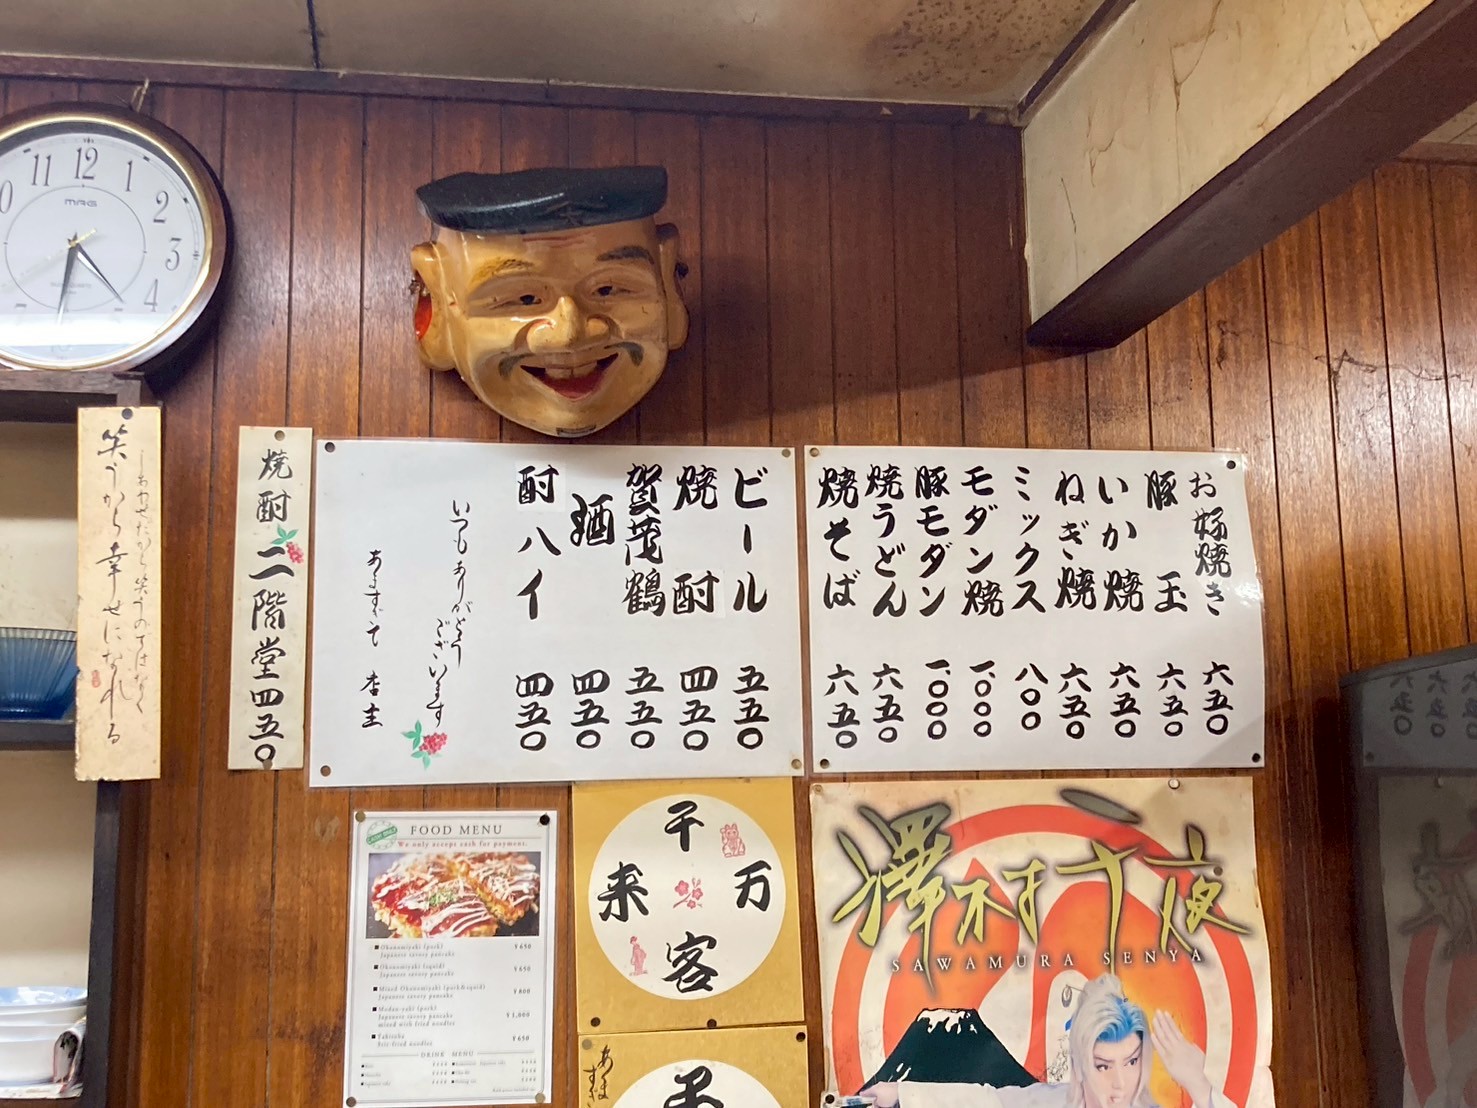 11
12
1
2
3
4
MRG
しあわせだから笑うのではなく
笑うから幸せになれる
焼酎 二階堂 四五〇
お好焼き 六五〇
豚玉 六五〇
いか焼 六五〇
ねぎ焼 六五〇
ミックス 八〇〇
モダン焼 一、〇〇〇
豚モダン 一、〇〇〇
焼うどん 六五〇
焼そば 六五〇
ビール 五五〇
焼酎 四五〇
賀茂鶴 五五〇
酒 四五〇
酎ハイ 四五〇
いつもありがとう
ございます
あますそ 店主
FOOD MENU
CASH ONLY
We only accept cash for payment.
Okonomiyaki (pork) ¥650
Japanese savory pancake
Okonomiyaki (squid) ¥650
Japanese savory pancake
Mixed Okonomiyaki (pork&squid) ¥800
Japanese savory pancake
Modan-yaki (pork) ¥1,000
Japanese savory pancake
mixed with fried noodles
Yakisoba ¥650
Stir-fried noodles
DRINK MENU
千
客
万
来
澤村千夜
SAWAMURA SENYA
六五〇
六五〇
六五〇